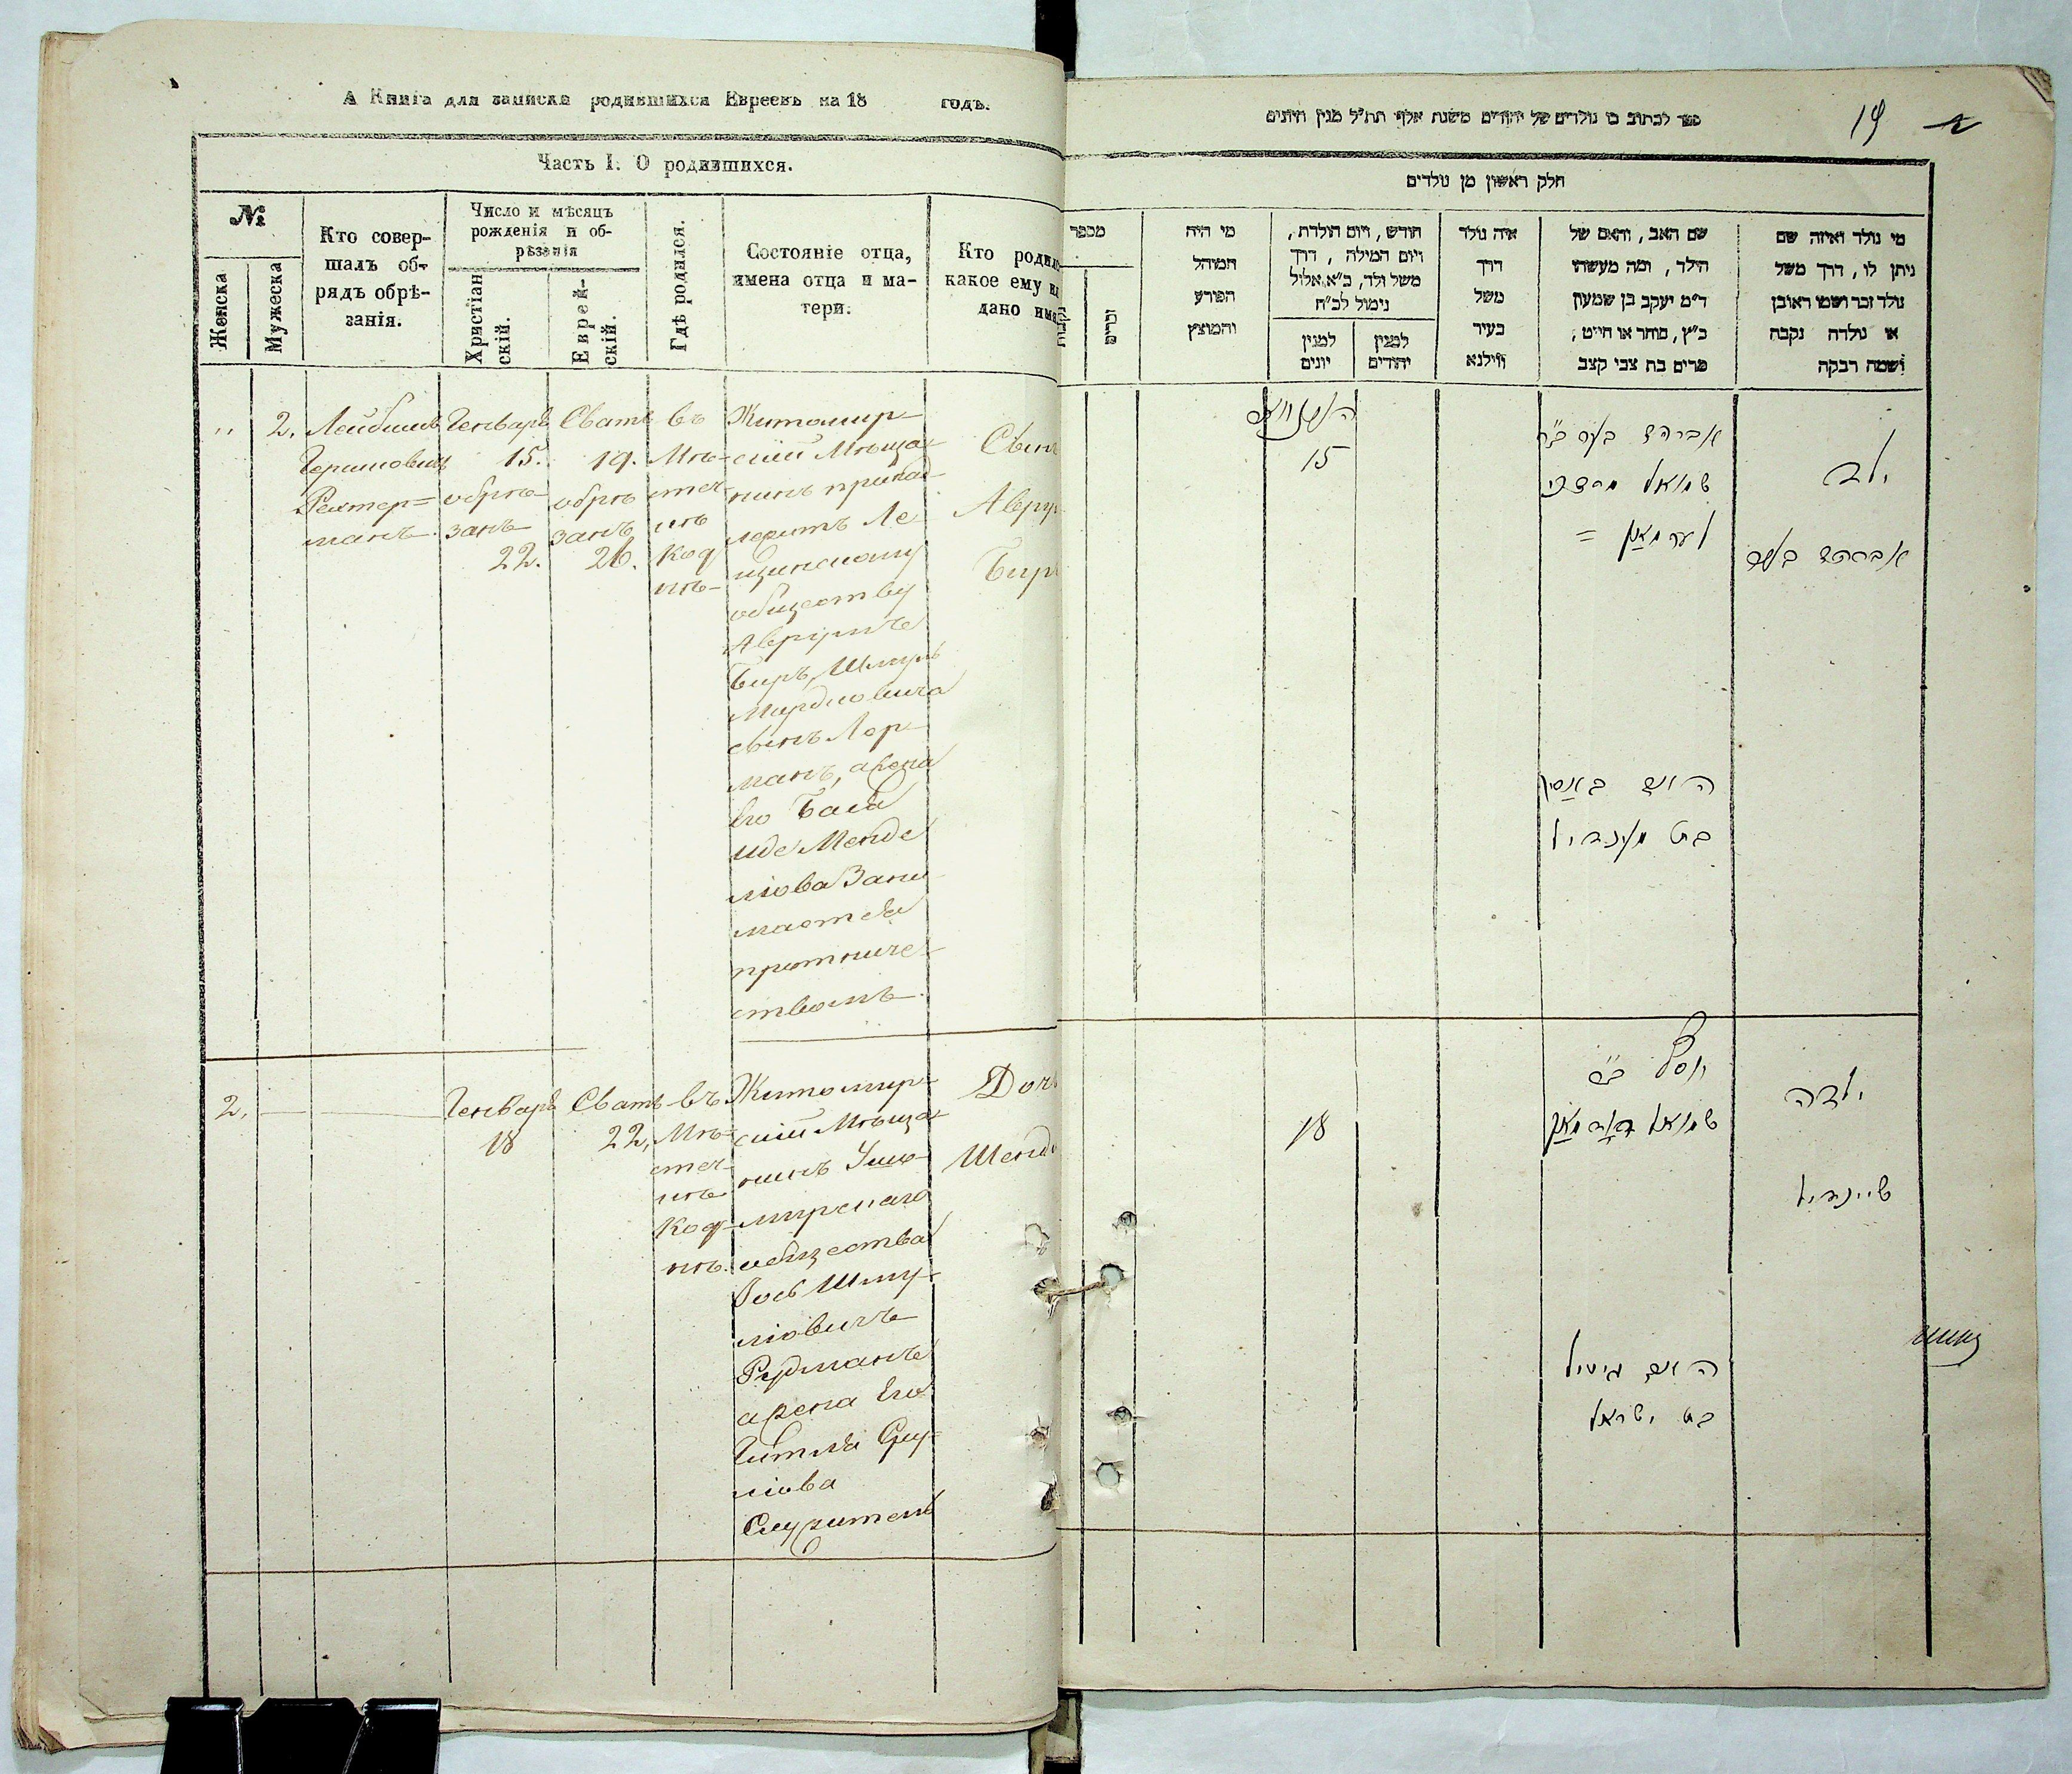 А Книга для записки родившихся Евреевъ на 18 годъ.
Часть I. О родившихся.
№
Женска
Мужеска
Кто совер-
шалъ об-
рядъ обрѣ-
занія.
Число и мѣсяцъ
рожденія и об-
рѣзанія
Христіан
скій.
Еврей-
скій.
Гдѣ родился.
Состояніе отца,
имена отца и ма-
тери.
Кто родил
какое ему и
дано име
"
2.
Лейбишъ
Гершковичъ
Рехтер=
манъ
Генваря
15.
обрѣ-
занъ
22.
Сватъ
19.
обрѣ
занъ
26.
въ
Мѣ-
стеч-
кѣ
Код
нѣ-
Житомир-
скій Мѣща-
нинъ принад-
лежитъ Ле-
щинскому
обществу
Аврумъ
Беръ, Шмуль
Мардковича
сынъ Лер-
манъ, жена
Его Бася
Менде
люва Зани-
мается
ствомъ.
Сынъ
Аврум
Беръ
2.
Генваря
18
Сватъ
22,
въ
Мѣ-
стеч-
кѣ
Код-
нѣ.
Житомир-
скій Мѣща-
нинъ Ушо-
мирскаго
общества
Іось Шму-
ліовичъ
Рудманъ
жена Его
Гитля Сру-
ліова
Служитель
Дочь
Шенд
ספר לכתוב בו נולדים של יהודים משנת אלף תת״ל מנין היונים
19
חלק ראשון מן נולדים
מי נולד ואיזה שם
ניתן לו, דרך משל
נולד זכר ושמו ראובן
או נולדה נקבה
ושמה רבקה
שם האב, והאם של
הילד, ומה מעשהו
ד״מ יעקב בן שמעון
כ״ץ, סוחר או חייט,
פרים בת צבי קצב
איה נולד
דרך
משל
בעיר
ווילנא
חודש, ויום הולדת,
ויום המילה, דרך
משל ולד, כ״א אלול
נימול לכ״ח
למנין
יהודים
למנין
יונים
מי היה
המוהל
הפורע
והמוצץ
מספר
זכרים
נקבות
ילד
אברהם בער
אברהם בער ב״ר
שמואל מרדכי
לערמאן =
האם באסי
בת מענדיל
15
ילדה
שיינדיל
יוסף ב״ר
שמואל רודמאן
האם גיטיל
בת ישראל
18